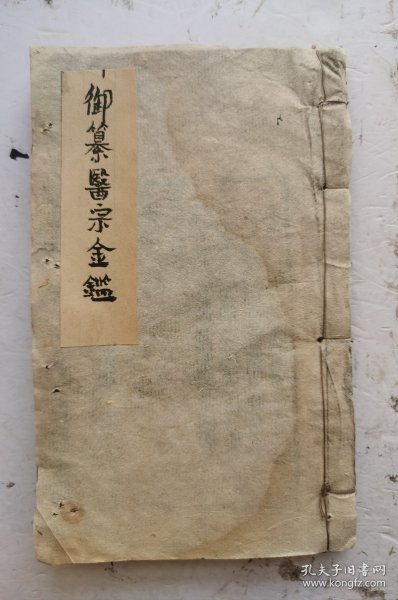 御纂醫宗金鑑
孔夫子旧书网
www.kongfz.com